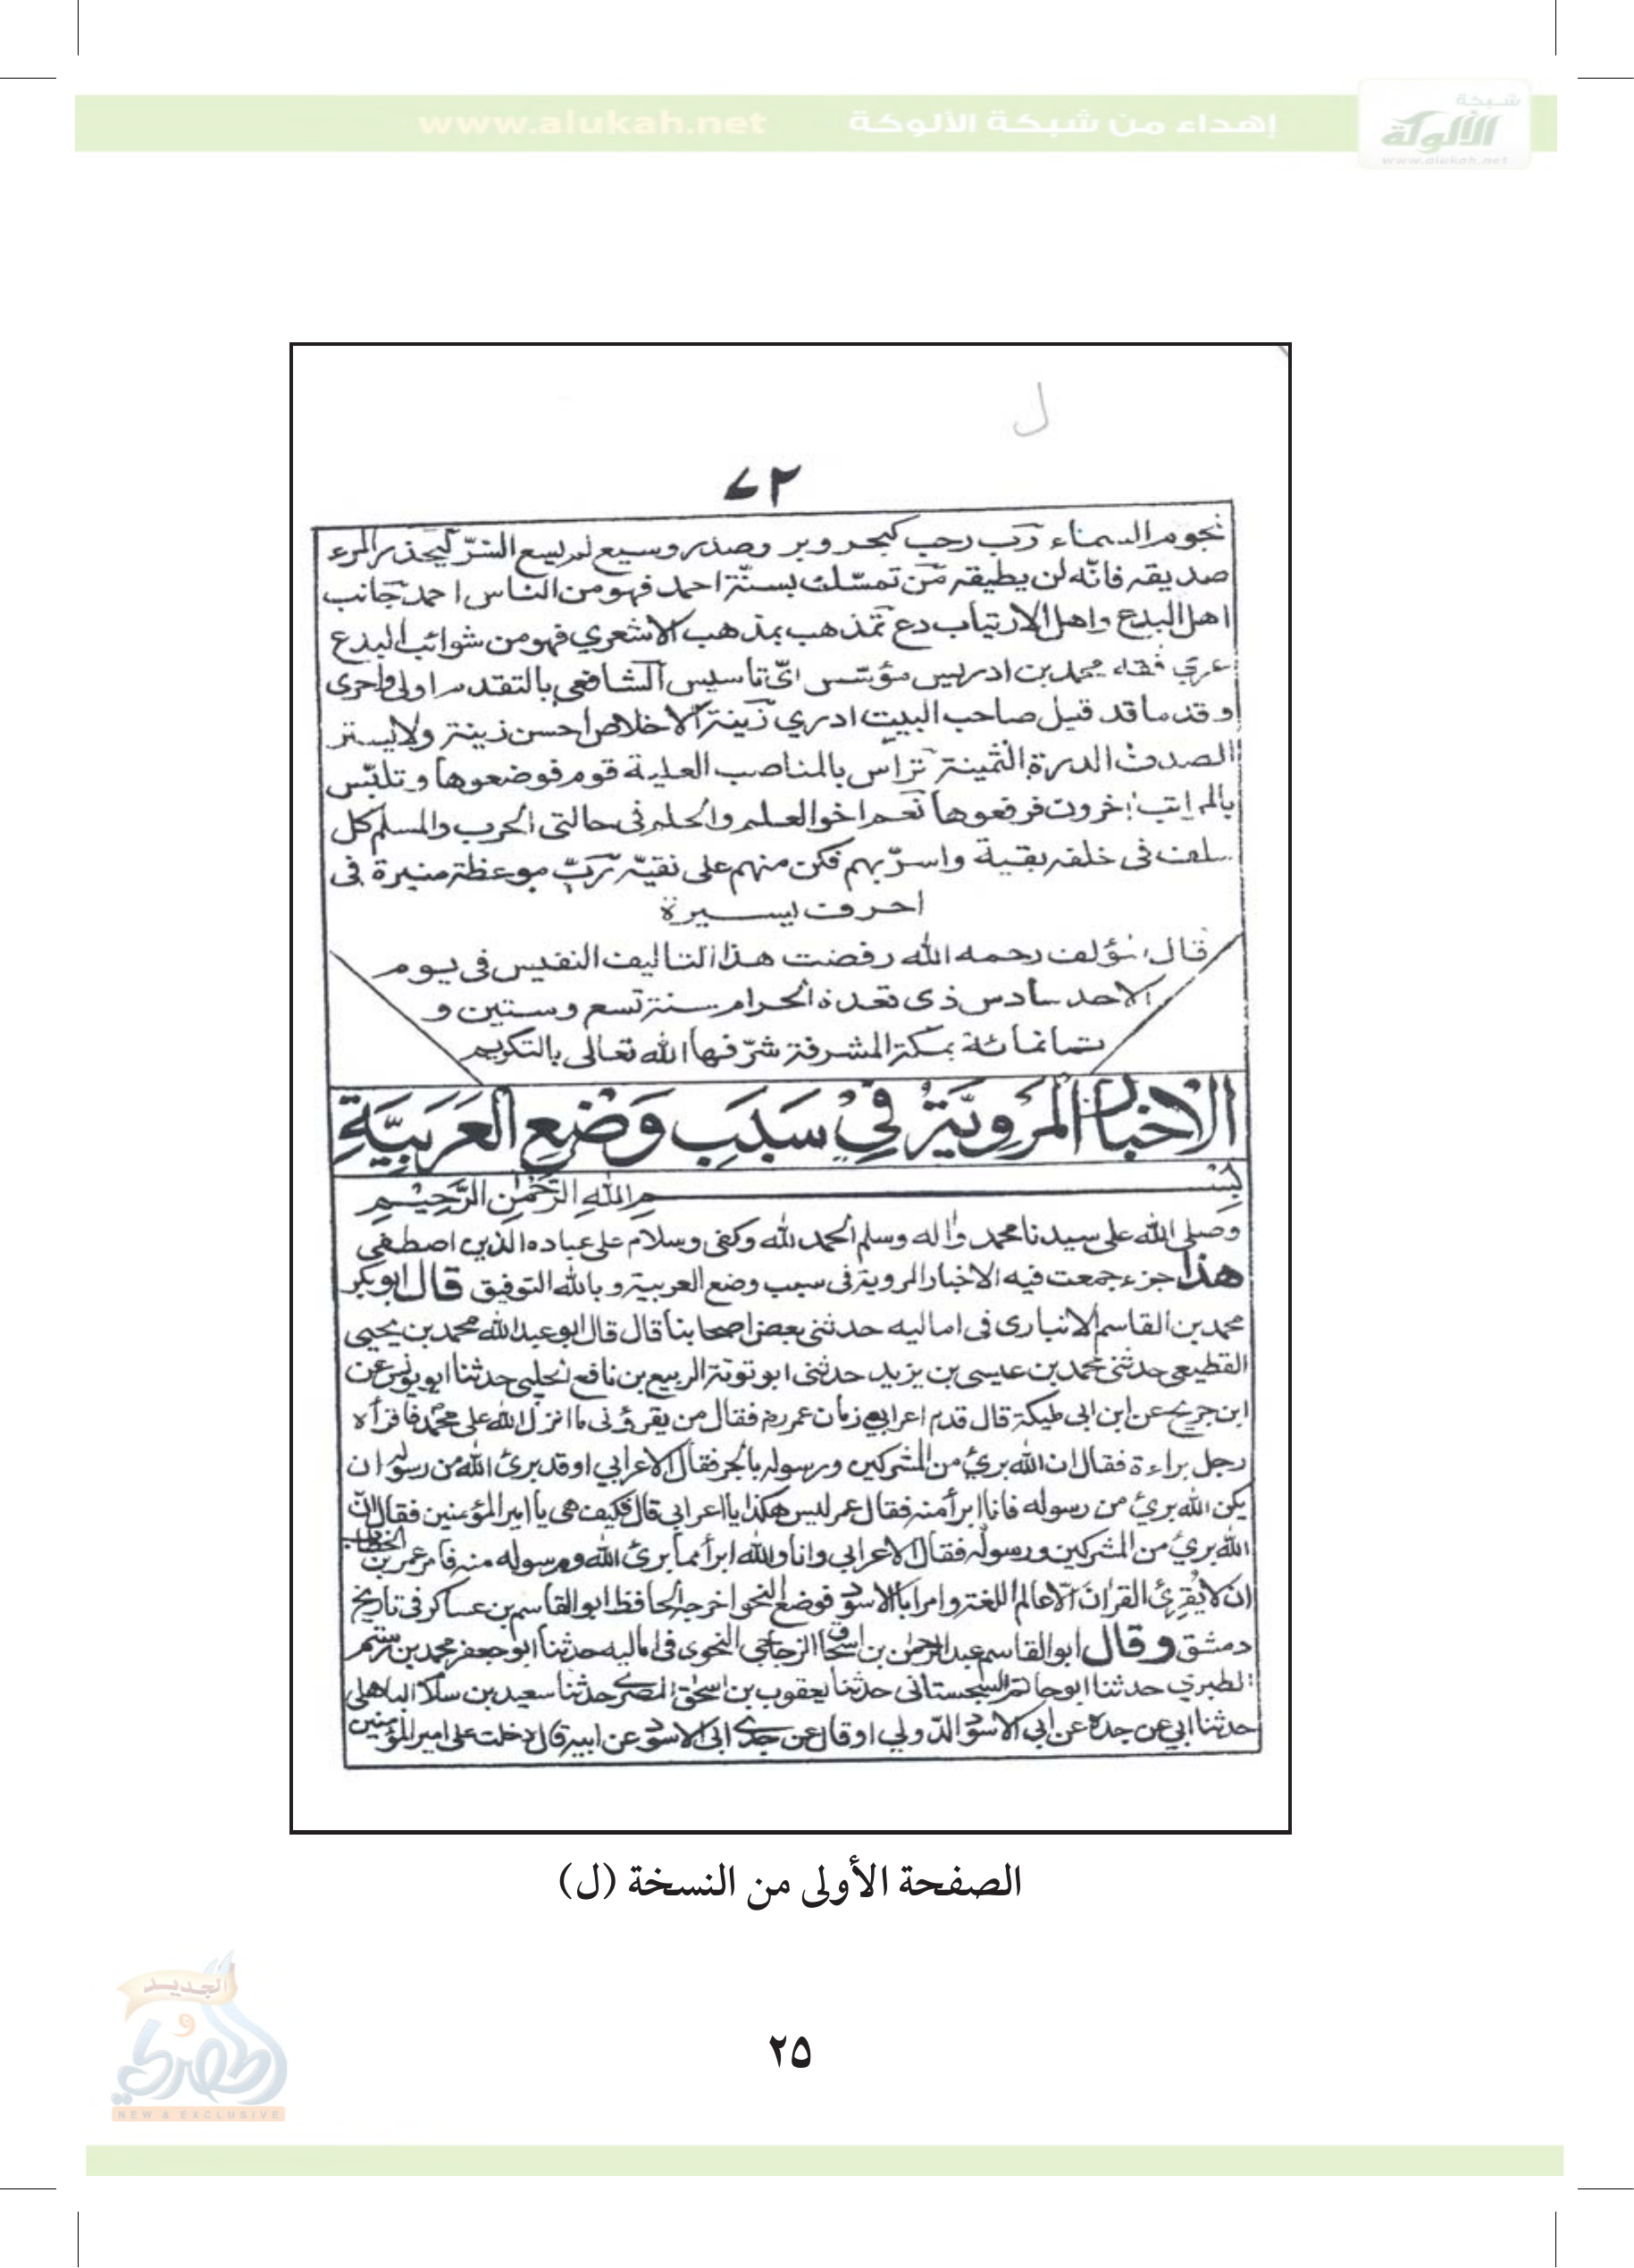 شبكة
الألوكة
www.alukah.net
إهداء من شبكة الألوكة www.alukah.net
ل
٧٢
نجوم السماء رب رحب كبحر وبر وصدر وسيع لم يسع السر ليحذر المرء
صديقه فانّه لن يطيقه من تمسّك بسنّة احمد فهو من الناس احمد جانب
اهل البدع واهل الارتياب دع تمذهب بمذهب الاشعري فهو من شوائب البدع
عري فقه محمد بن ادريس مؤسّس ايّ تاسيس الشافعي بالتقدم اولى واحرى
وقدما قد قيل صاحب البيت ادري زينة الاخلاص احسن زينة ولا يستر
الصدف الدرة الثمينة تراس بالمناصب العلية قوم فوضعوها وتلبّس
بالمراتب اخرون فرفعوها نعم اخو العلم والحلم في حالتي الحرب والسلم كل
سلف في خلفه بقية واسرّ بهم فكن منهم على نقيّه ربّ موعظة منيرة في
احرف يسيرة
قال مؤلف رحمه الله رفضت هذا التاليف النفيس في يوم
الاحد سادس ذي قعدة الحرام سنة تسع وستين و
ثمانمائة بمكة المشرفة شرّفها الله تعالى بالتكريم
الاخبار المَرويّة في سَبَبِ وَضعِ العَرَبيَّةِ
بسم الله الرَّحمٰن الرَّحيم
وصلى الله على سيدنا محمد واله وسلم الحمد لله وكفى وسلام على عباده الذين اصطفى
هذا جزء جمعت فيه الاخبار المروية في سبب وضع العربية وبالله التوفيق قال ابو بكر
محمد بن القاسم الانباري في اماليه حدثني بعض اصحابنا قال قال ابو عبد الله محمد بن يحيى
القطيعي حدثني محمد بن عيسى بن يزيد حدثني ابو توبة الربيع بن نافع الحلبي حدثنا ابو يونس عن
ابن جريج عن ابن ابي مليكة قال قدم اعرابي زمان عمر رض فقال من يقرؤني ما انزل الله على محمد فاقرأه
رجل براءة فقال ان الله بريء من المشركين ورسوله بالجر فقال الاعرابي او قد بريء الله من رسوله ان
يكن الله بريء من رسوله فانا ابرأ منه فقال عمر ليس هكذا يا اعرابي قال فكيف هي يا امير المؤمنين فقال انّ
الله بريء من المشركين ورسولُه فقال الاعرابي وانا والله ابرأ مما بريء الله ورسوله منه فامر عمر بن الخطاب
ان لا يُقرِئ القران الّا عالم اللغة وامر ابا الاسود فوضع النحو اخرجه الحافظ ابو القاسم بن عساكر في تاريخ
دمشق وقال ابو القاسم عبد الرحمٰن بن اسحاق الزجاجي النحوي في اماليه حدثنا ابو جعفر محمد بن رستم
الطبري حدثنا ابو حاتم السجستاني حدثنا يعقوب بن اسحٰق الحضرمي حدثنا سعيد بن سلم الباهلي
حدثنا ابي عن جده عن ابي الاسود الدّولي او قال عن جدي ابي الاسود عن ابيه قال دخلت على امير المؤمنين
الصفحة الأولى من النسخة (ل)
الجديد
و
الحصري
NEW & EXCLUSIVE
٢٥